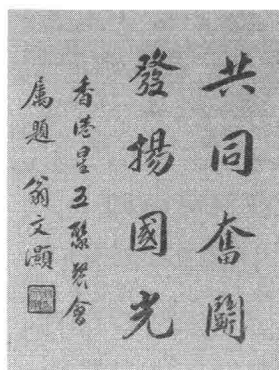 共同奮鬭
發揚國光
香港星五聚餐會
屬題 翁文灝